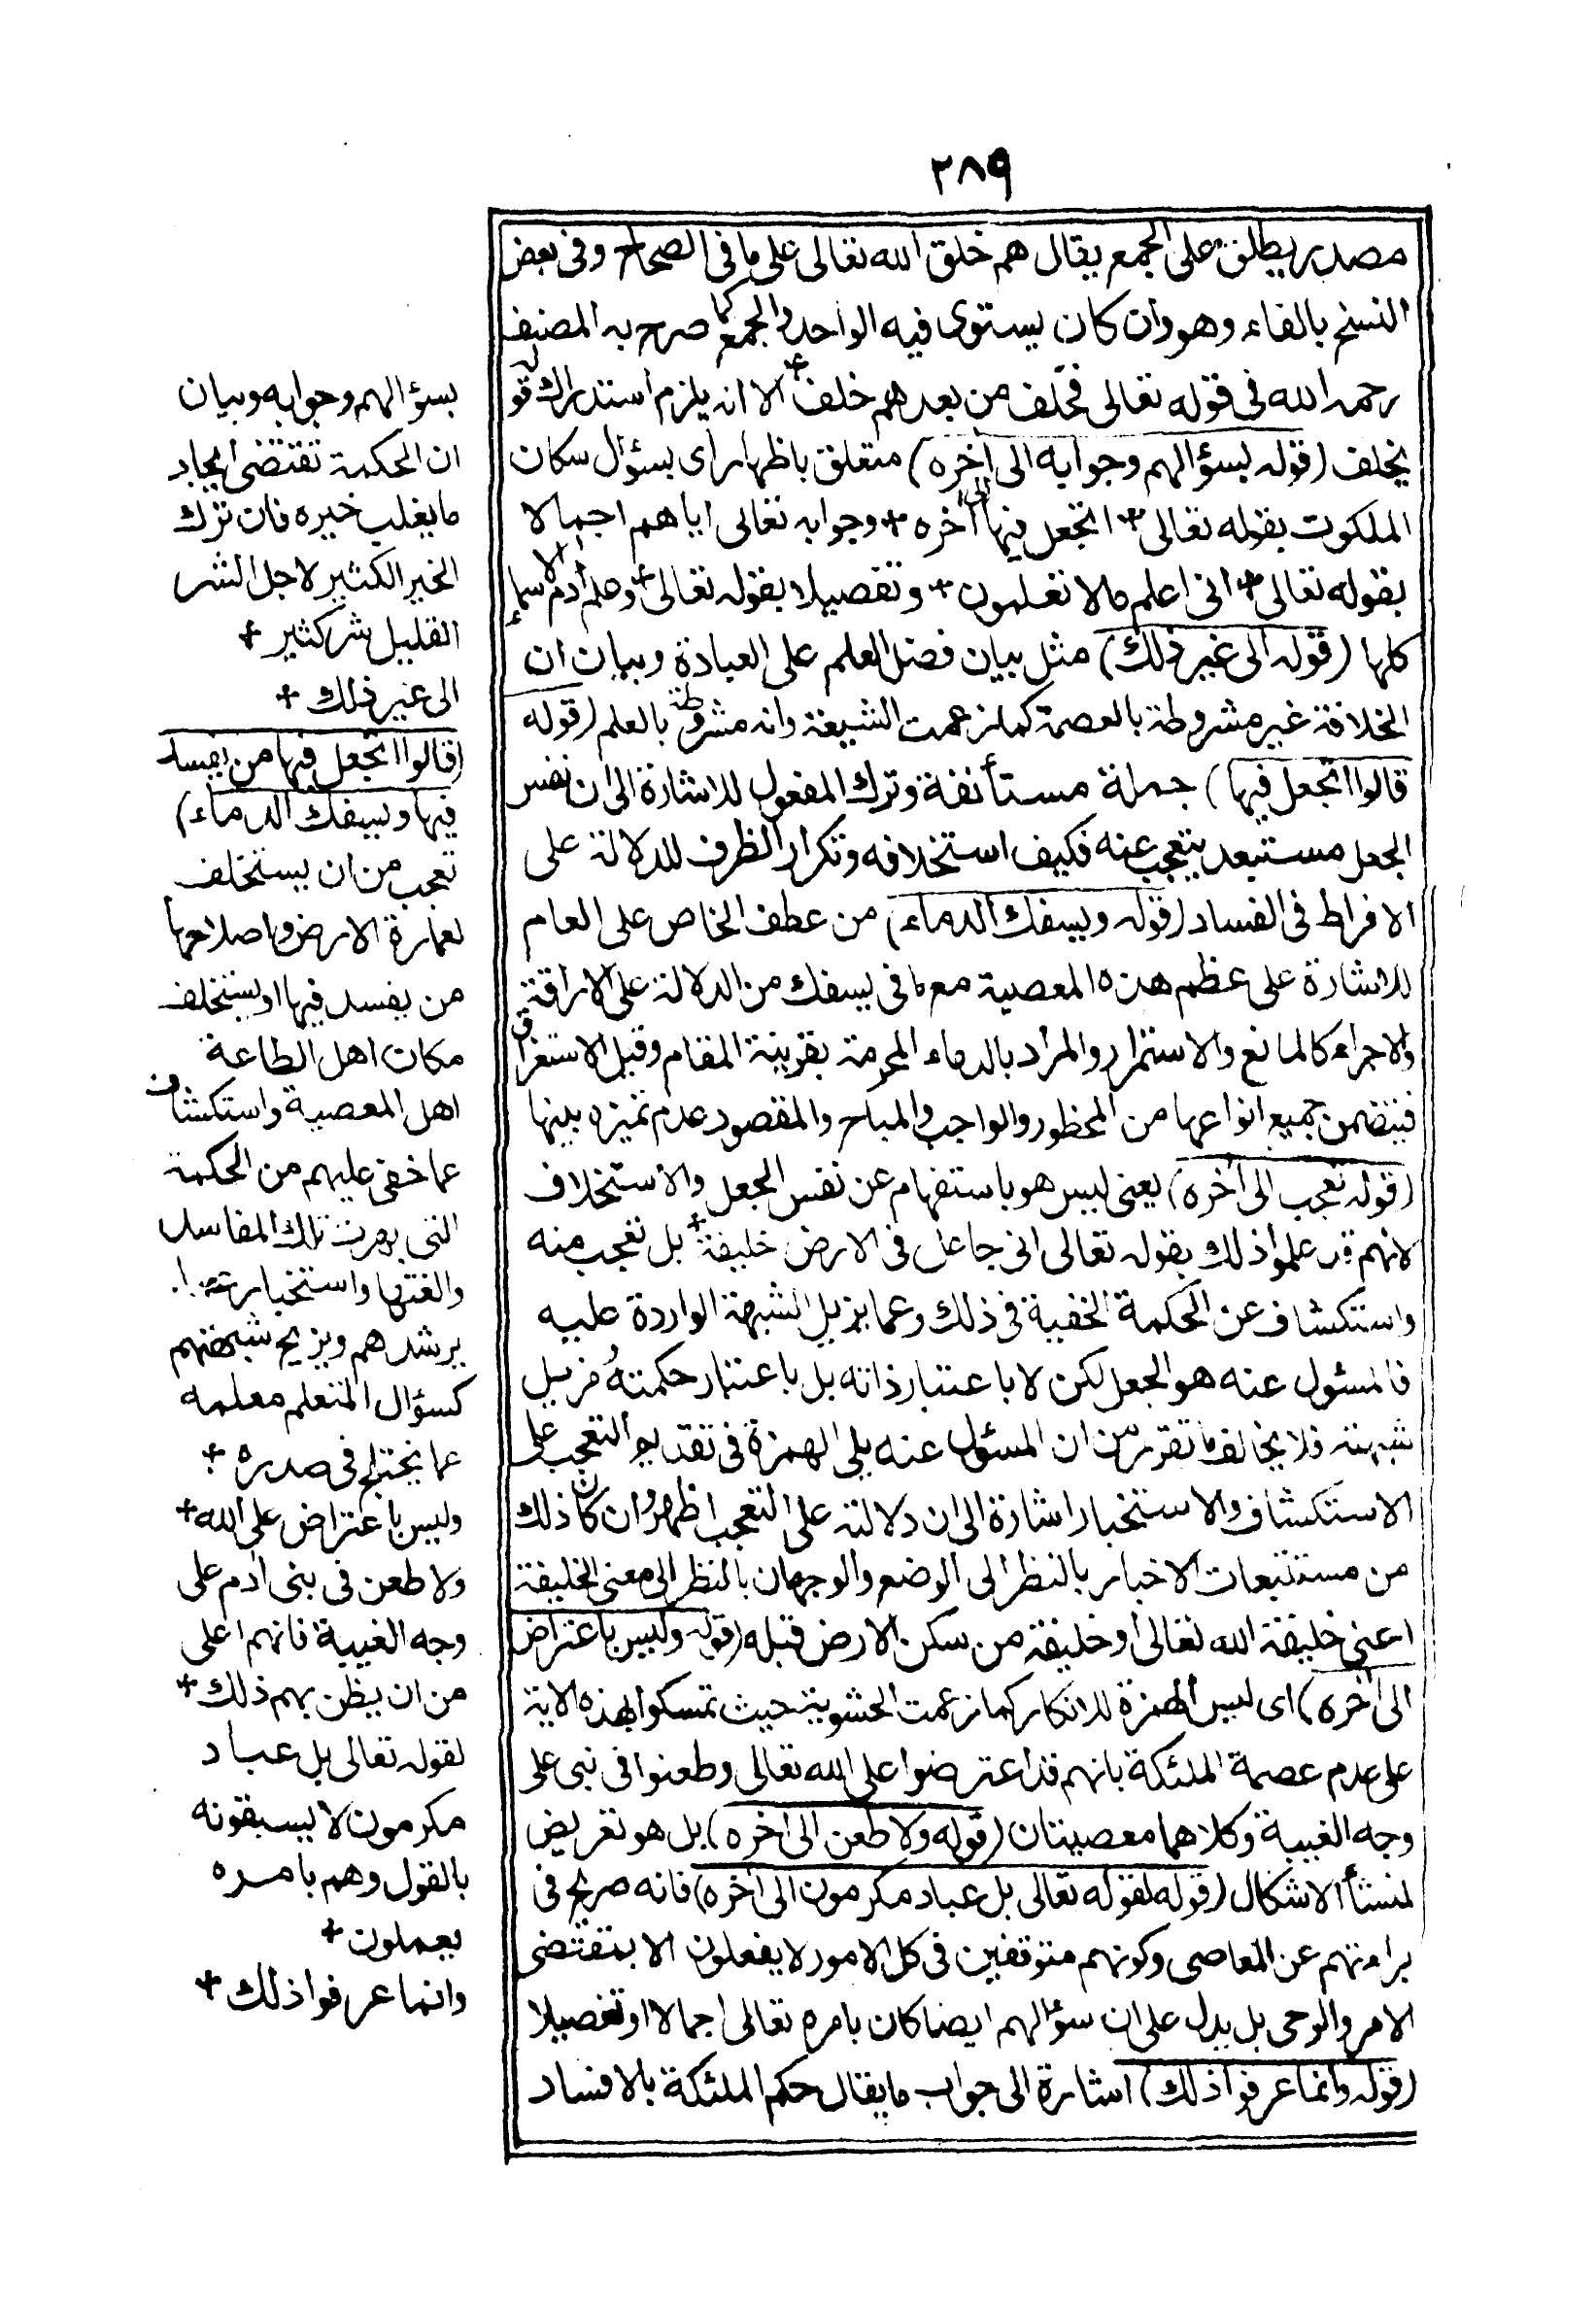 ٢٨٩
مصدر يطلق على الجمع يقال هم خلق الله تعالى على ما فى الصحاح وفى بعض
النسخ بالفاء وهو وان كان يستوى فيه الواحد والجمع كما صرح به المصنف
رحمه الله فى قوله تعالى فخلف من بعدهم خلف الا انه يلزم استدراك قوله
يخلف (قوله بسؤالهم وجوابه الى اخره) متعلق باظهار اى بسؤال سكان
الملكوت بقوله تعالى * اتجعل فيها الى اخره * وجوابه تعالى اياهم اجمالا
بقوله تعالى * انى اعلم مالا تعلمون * وتفصيلا بقوله تعالى * وعلم أدم الاسماء
كلها (قوله الى غير ذلك) مثل بيان فضل العلم على العبادة وبيان ان
الخلافة غير مشروطة بالعصمة كما زعمت الشيعة وانه مشروطة بالعلم (قوله
قالوا اتجعل فيها) جملة مستأنفة وترك المفعول للاشارة الى ان نفس
الجعل مستبعد يتعجب عنه فكيف استخلافه وتكرار الظرف للدلالة على
الافراط فى الفساد (قوله ويسفك الدماء) من عطف الخاص على العام
للاشارة على عظم هذه المعصية مع ما فى يسفك من الدلالة على الاراقة
والاجراء كالمائع والاستمرار والمراد بالدماء المحرمة بقرينة المقام وقيل الاستغراق
فيتضمن جميع انواعها من المحظور والواجب والمباح والمقصود عدم تميزه بينها
(قوله تعجب الى أخره) يعنى ليس هو باستفهام عن نفس الجعل والاستخلاف
لانهم قد علموا ذلك بقوله تعالى انى جاعل فى الارض خليفة * بل تعجب منه
واستكشاف عن الحكمة الخفية فى ذلك وعما يزيل الشبهة الواردة عليه
فالمسئول عنه هو الجعل لكن لا باعتبار ذاته بل باعتبار حكمته ومزيل
شبهته فلا يخالف ما تقرر من ان المسئول عنه يلى الهمزة فى تقديم التعجب على
الاستكشاف والاستخبار اشارة الى ان دلالته على التعجب اظهر وان كان ذلك
من مستتبعات الاخبار بالنظر الى الوضع والوجهان بالنظر الى معنى الخليفة
اعنى خليفة الله تعالى او خليفة من سكن الارض قبله (قوله وليس باعتراض
الى أخره) اى ليس الهمزة للانكار كما زعمت الحشوية حيث تمسكوا بهذه الاية
على عدم عصمة الملئكة بانهم قد اعترضوا على الله تعالى وطعنوا فى نبى على
وجه الغيبة وكلاهما معصيتان (قوله ولا طعن الى اخره) بل هو تعريض
لمنشأ الاشكال (قوله لقوله تعالى بل عباد مكرمون الى أخره) فانه صريح فى
براءتهم عن المعاصى وكونهم متوقفين فى كل الامور لا يفعلون الا بمقتضى
الامر والوحى بل يدل على ان سؤالهم ايضا كان بامره تعالى اجمالا او تفصيلا
(قوله وانما عرفوا ذلك) اشارة الى جواب ما يقال حكم الملئكة بالافساد
بسؤالهم وجوابه وبيان
ان الحكمة تقتضى ايجاد
ما يغلب خيره فان ترك
الخير الكثير لاجل الشر
القليل شر كثير *
الى غير ذلك *
(قالوا اتجعل فيها من يفسد
فيها ويسفك الدماء)
تعجب من ان يستخلف
لعمارة الارض واصلاحها
من يفسد فيها او يستخلف
مكان اهل الطاعة
اهل المعصية واستكشاف
عما خفى عليهم من الحكمة
التى بهرت تلك المفاسد
والغتها واستخبار عما
يرشدهم ويزيح شبهتهم
كسؤال المتعلم معلمه
عما يختلج فى صدره *
وليس باعتراض على الله *
ولا طعن فى بنى أدم على
وجه الغيبة فانهم اعلى
من ان يظن بهم ذلك *
لقوله تعالى بل عباد
مكرمون لا يسبقونه
بالقول وهم بامره
يعملون *
وانما عرفوا ذلك *